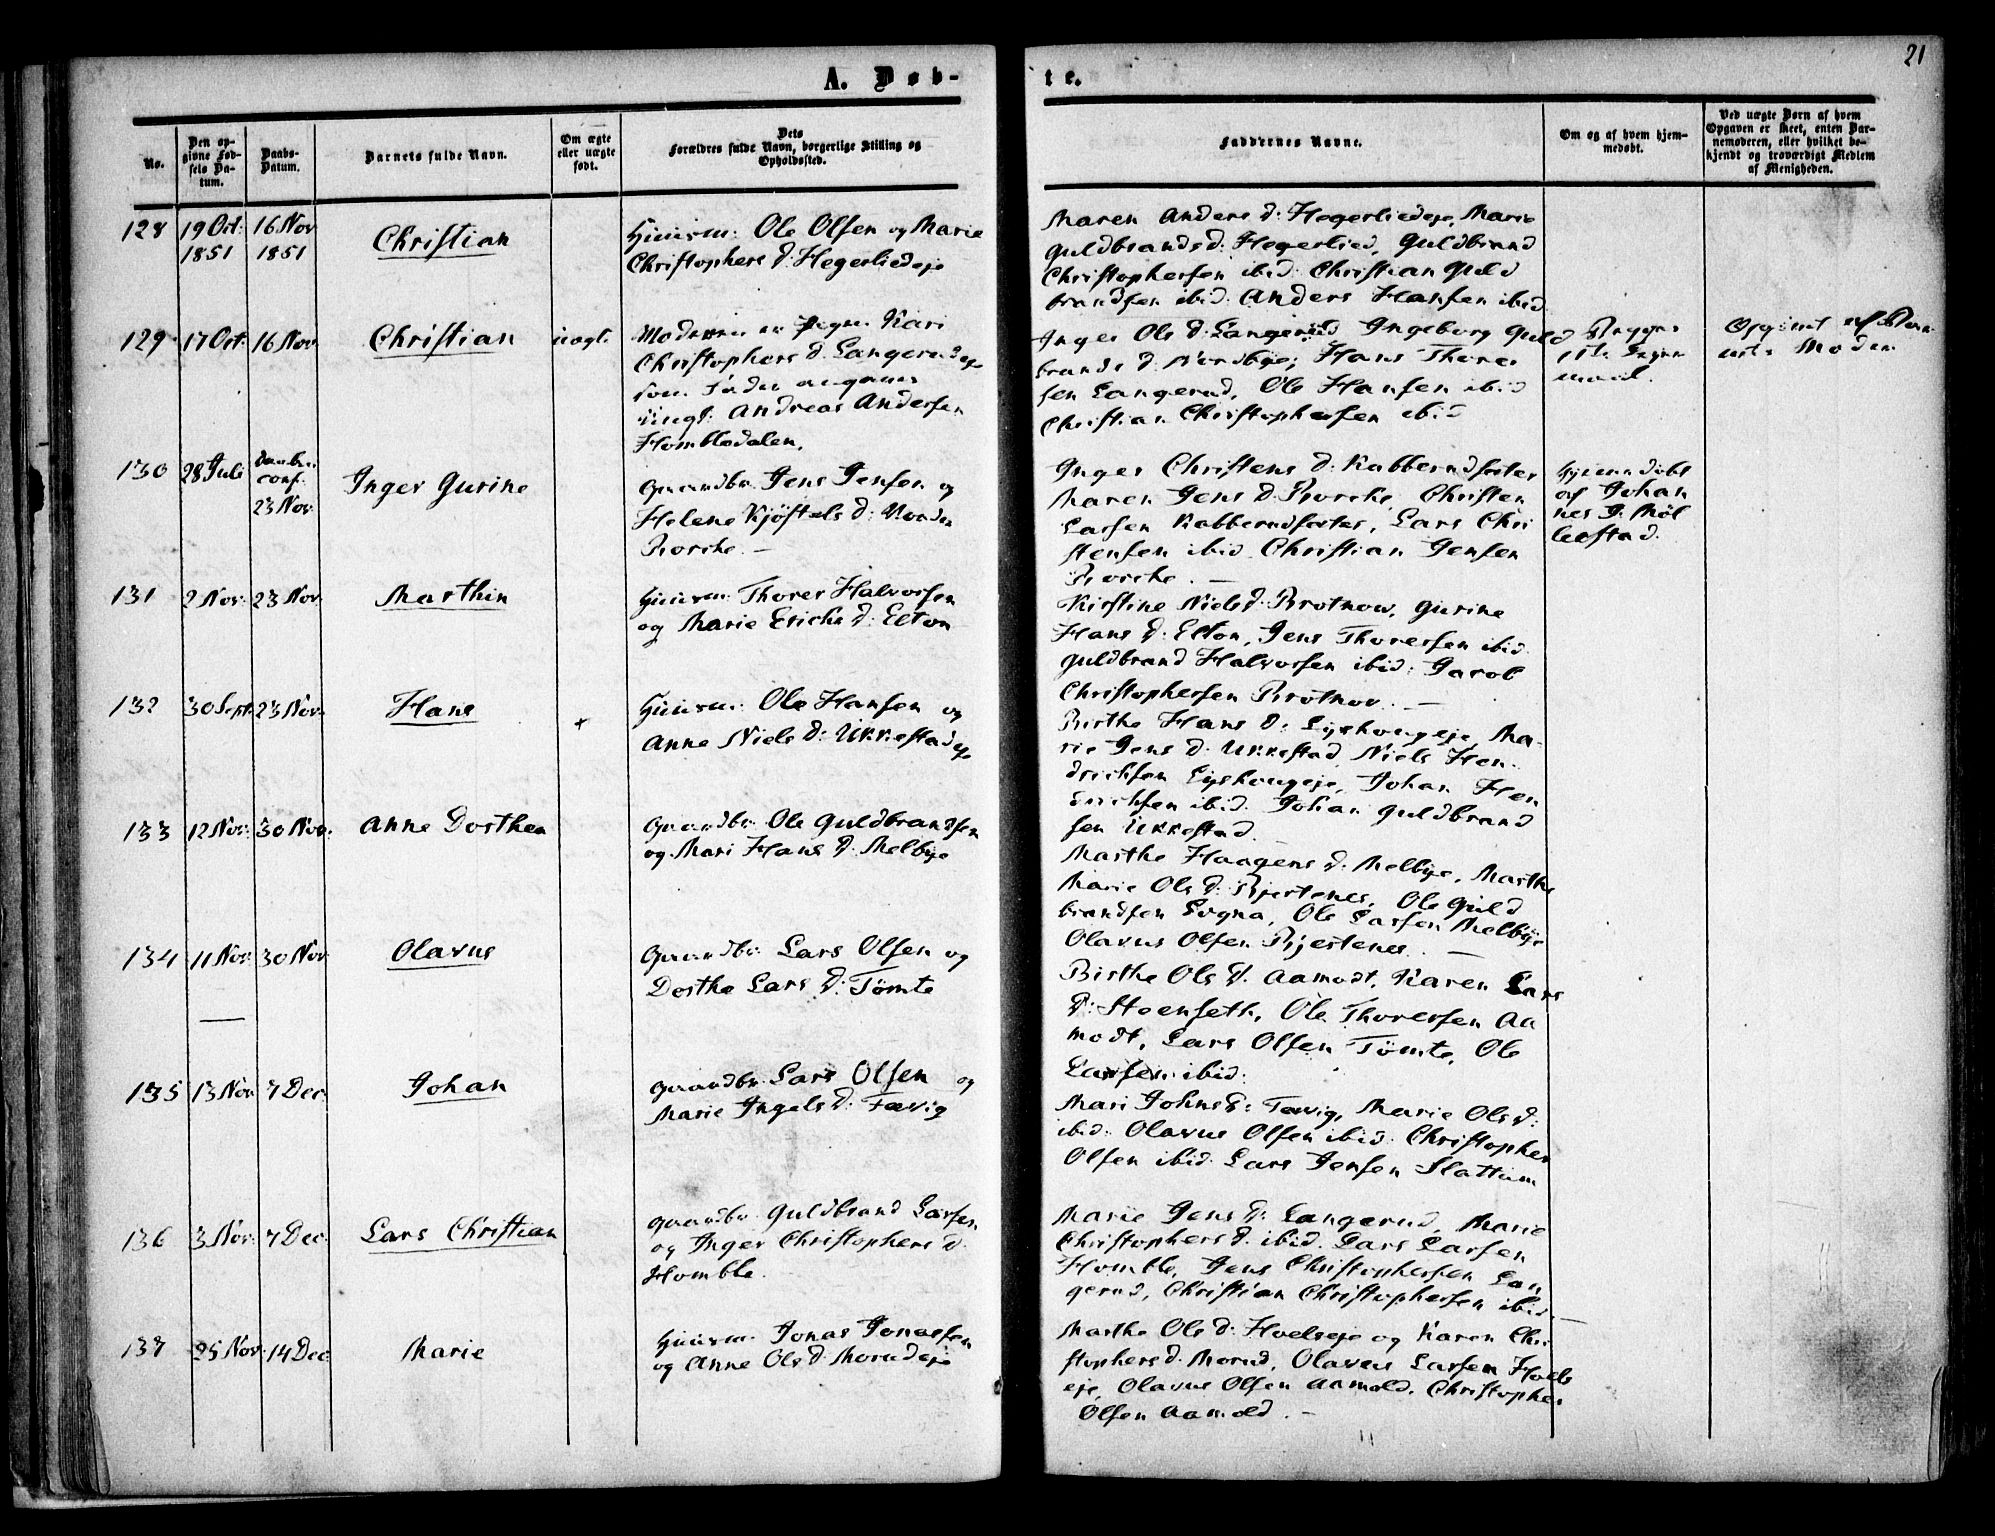 21
A. Døb-
te.
No.
Den op-
givne Fød-
sels Da-
tum.
Daabs-
Datum.
Barnets fulde Navn.
Om ægte
eller uægte
født.
Dets
Forældres fulde Navn, borgerlige Stilling og
Opholdssted.
Faddernes Navne.
Om og af hvem hjem-
medøbt.
Ved uægte Børn af hvem
Opgaven er skeet, enten Bar-
nemoderen, eller hvilket be-
kjendt og troværdigt Medlem
af Menigheden.
128
19 Oct:
1851
16 Nov
1851
Christian
Huusm: Ole Olsen og Marie
Christophers d: Hegerliedeje
Maren Anders d: Hegerliedeje, Marie
Guldbrands d: Hegerlied, Guldbrand
Christophersen ibid: Christian Guld
brandsen ibid: Anders Hansen ibid
129
17 Oct:
16 Nov
Christian
uægt:
Moderen er Pigen Kari
Christophers d: Langerudeje
som Fader angaves
Ungk: Andreas Andersen
Hombledalen.
Inger Ols d: Langerud Ingeborg Guld
brands d: Nordbye; Hans Thores
sen Langerud, Ole Hansen ibid
Christian Christophersen ibid
130
28 Juli
conf.
23 Nov
Inger Gurine
Gaardbr: Jens Jensen og
Helene Kjøstels d: Nordre
Borche. —
Inger Christens d: Kabberudfoster
Maren Jens d: Borche, Christen
Larsen Kabberudfoster, Lars Chri
stensen ibid. Christian Jensen
Borche. —
Hjemmedøbt
af Johan
nes J: Møl
lerstad.
131
2 Nov:
23 Nov
Marthin
Huusm: Thores Halvorsen
og Marie Erichs d: Elton
Kirstine Niels d: Brotnow, Gurine
Hans d: Elton, Jens Thoresen ibid.
Guldbrand Halvorsen ibid: Jacob
Christophersen Brotnov. —
132
30 Sept:
23 Nov.
Hans
Huusm: Ole Hansen og
Anne Niels d: Ukkestadeje
Birthe Hans d: Lyshougeje, Ma-
rie Jens d: Ukkestad, Niels Hen-
drichsen Lyshougeje, Johan Hen
drichsen ibid. Johan Guldbrand
sen Ukkestad.
133
12 Nov:
30 Nov:
Anne Dorthea
Gaardbr: Ole Guldbrandsen
og Mari Hans d: Melbye
Marthe Haagens d: Melbye, Marthe
Marie Ols d: Bjertenes, Ole Guld
brandsen Sogna, Ole Larsen Melbye
Olavus Olsen Bjertenes. —
134
11 Nov:
30 Nov
Olavus
Gaardbr: Lars Olsen og
Dorthe Lars d: Tømte
Birthe Ols d: Aamodt, Karen Lars
d: Steenseth, Ole Thoresen Aa
modt, Lars Olsen Tømte, Ole
Larsen ibid:
135
13 Nov
7 Dec:
Johan
Gaardbr: Lars Olsen og
Marie Ingels d: Fævig
Mari Johns d: Fævig, Marie Ols d:
ibid: Olavus Olsen ibid: Christopher
Olsen ibid. Lars Jensen Slattum
136
3 Nov:
7 Dec:
Lars Christian
Gaardbr: Guldbrand Larsen
og Inger Christophers d.
Homble.
Marie Jens d: Langerud, Marie
Christophers d. ibid. Lars Larsen
Homble, Jens Christophersen Lan
gerud, Christian Christophersen ibid.
137
25 Nov:
14 Dec:
Marie
Huusm: Jonas Jonassen
og Anne Ols d: Morudeje
Marthe Ols d: Hoelseje og Karen Chri
stophers d: Morud, Olavus Larsen Hoels
eje, Olavus Olsen Aamold. Christopher
Olsen Aamold. —